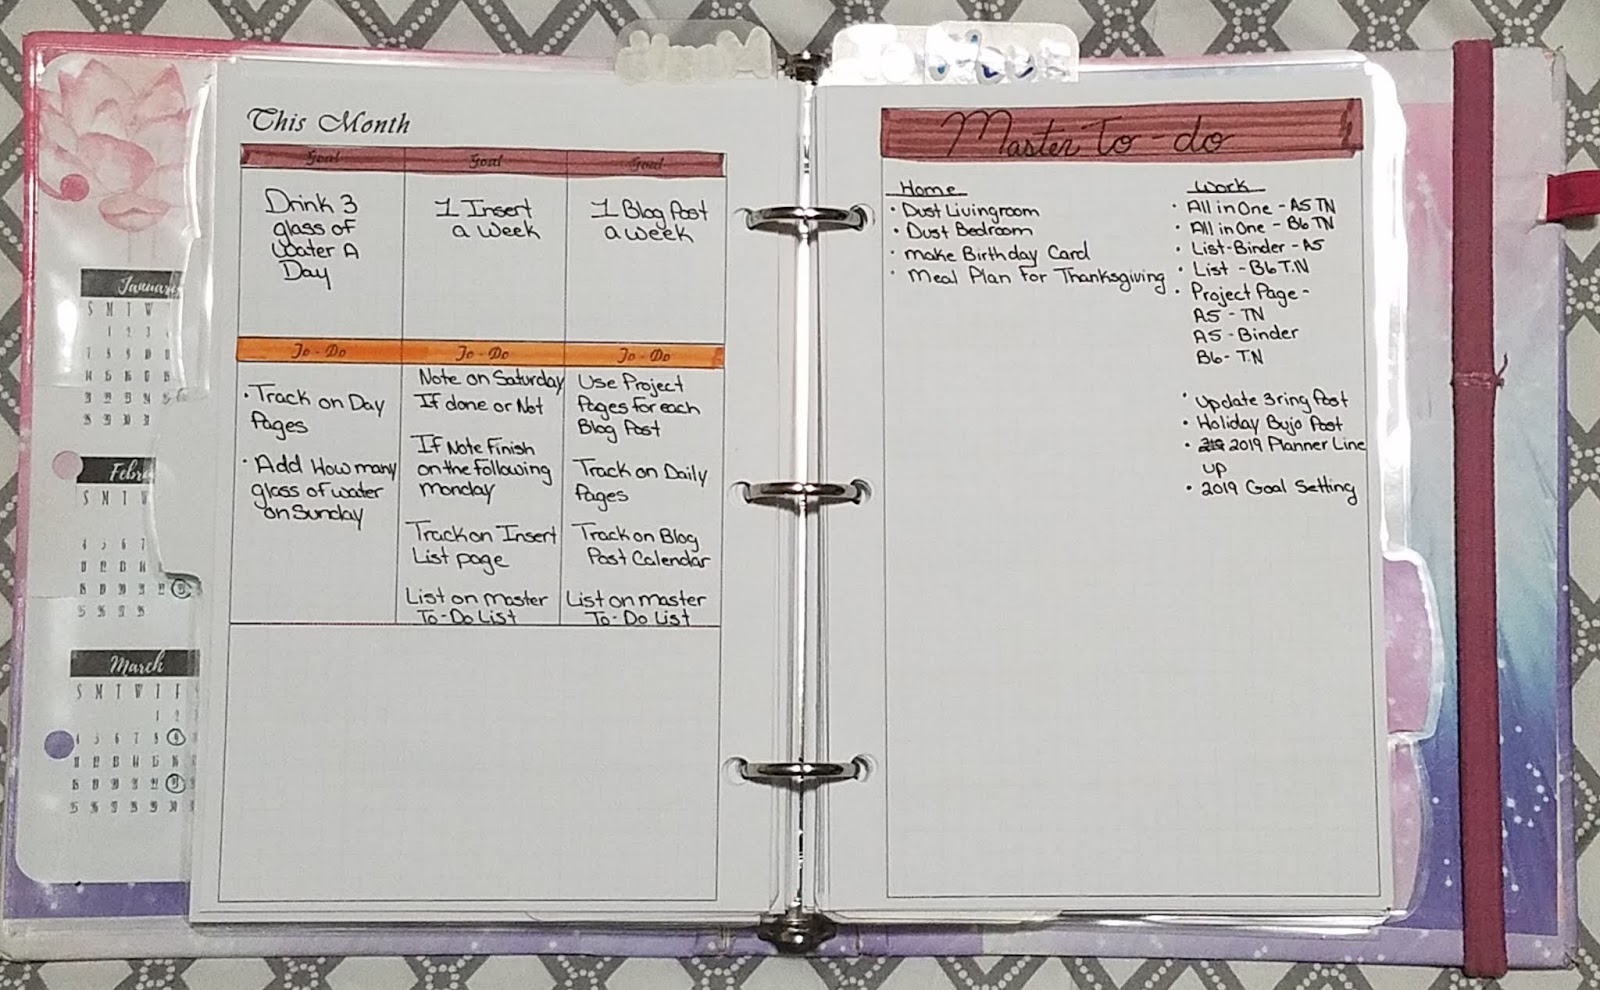 This Month
Goal Goal Goal
Drink 3
glass of
Water A
Day
1 Insert
a week
1 Blog Post
a week
To-Do To-Do To-Do
• Track on Day
Pages
• Add How many
glass of water
on Sunday
Note on Saturday
If done or Not
If Note Finish
on the following
monday
Track on Insert
List page
List on master
To-Do List
Use Project
Pages for each
Blog Post
Track on Daily
Pages
Track on Blog
Post Calendar
List on master
To-Do List
Master To-do
Home
• Dust Livingroom
• Dust Bedroom
• make Birthday Card
• Meal Plan For Thanksgiving
Work
• All in One - A5 TN
• All in One - B6 TN
• List-Binder - A5
• List - B6 T.N
• Project Page -
A5 - TN
A5 - Binder
B6 - T.N
• Update 3ring Post
• Holiday Bujo Post
• 2019 Planner Line
up
• 2019 Goal Setting
January
S M T W
1 2 3 4
7 8 9 10 11
Febru
S M T W
4 5 6 7
March
S M T W T F
1 2
4 5 6 7 8 9